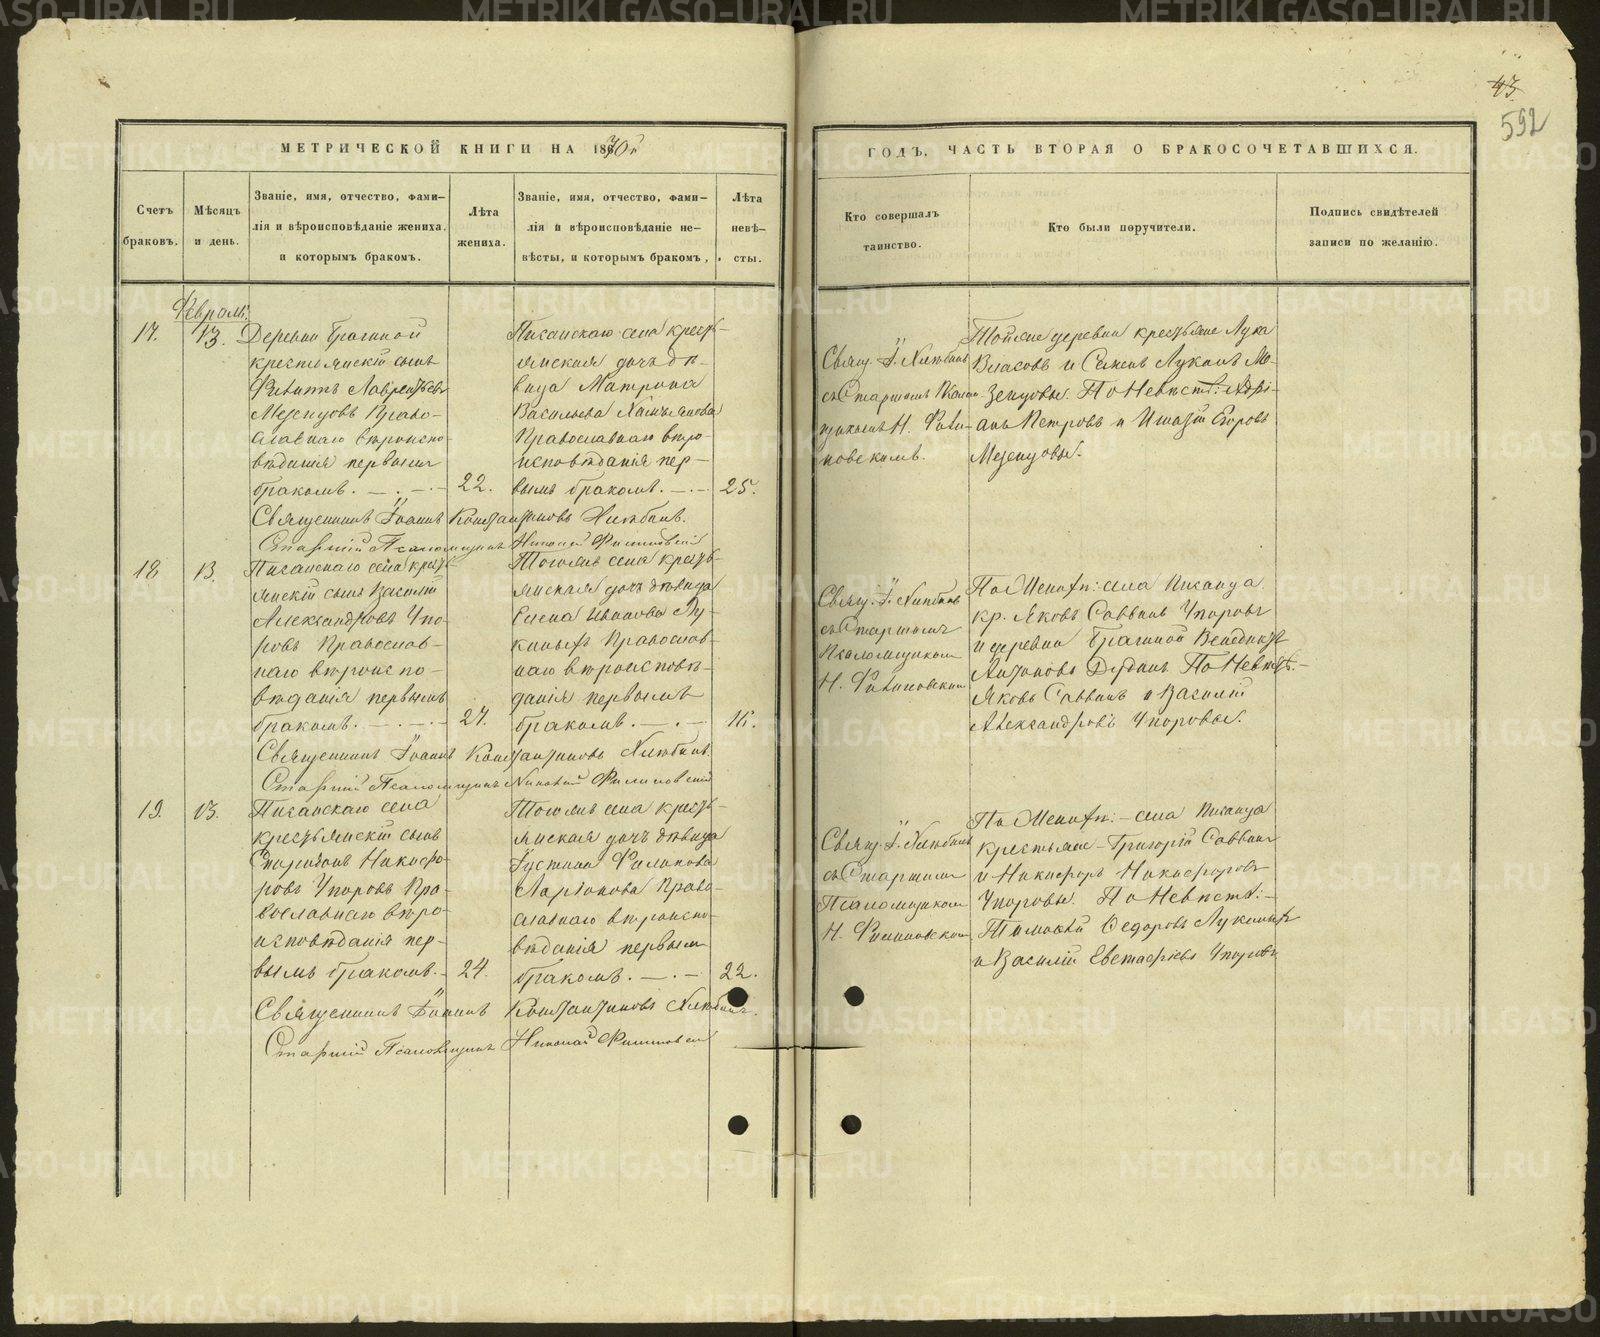 43
592
МЕТРИЧЕСКОЙ КНИГИ НА 1870й
ГОДЪ, ЧАСТЬ ВТОРАЯ О БРАКОСОЧЕТАВШИХСЯ.
Счетъ
браковъ.
Мѣсяцъ
и день.
Званіе, имя, отчество, фами-
лія и вѣроисповѣданіе жениха.
и которымъ бракомъ.
Лѣта
жениха.
Званіе, имя, отчество, фами-
лія и вѣроисповѣданіе не-
вѣсты, и которымъ бракомъ,
Лѣта
невѣ-
сты.
Кто совершалъ
таинство.
Кто были поручители.
Подпись свидѣтелей
записи по желанію.
Февраль.
17.
13.
Деревни Брагиной
крестьянскій сынъ
Лаврентьевъ
Мезенцовъ Право-
славнаго вѣроиспо-
вѣданія первымъ
бракомъ.
22.
Писанскаго села кресть-
янская дочь дѣ-
вица Матрона
Васильева
Православнаго вѣро-
исповѣданія пер-
вымъ бракомъ.
25.
Свящ. І. Хлѣбинъ
съ Старшимъ Псалом-
щикомъ Н. Фили-
повскимъ.
Тойже деревни крестьяне Лука
Власовъ и Семенъ Лукинъ Ме-
зенцовы. По Невѣст: Адрі-
анъ Петровъ и Егоровъ
Мезенцовы.
Священникъ Іоаннъ Константиновъ Хлѣбинъ.
Старшій Псаломщикъ Николай Филиповскій
18
13.
Писанскаго села кресть-
янскій сынъ Василій
Александровъ Упо-
ровъ Православ-
наго вѣроиспо-
вѣданія первымъ
бракомъ.
21.
Тогоже села кресть-
янская дочь дѣвица
Елена Иванова Лу-
киныхъ Православ-
наго вѣроисповѣ-
данія первымъ
бракомъ.
16.
Свящ. І. Хлѣбинъ
съ Старшимъ
Псаломщикомъ
Н. Филиповскимъ
По Жених: села Писанца
кр. Яковъ Саввинъ Упоровъ
и деревни Брагиной Венедиктъ
Антоновъ По Невѣст:
Яковъ Саввинъ и Василій
Александровъ Упоровы.
Священникъ Іоаннъ Константиновъ Хлѣбинъ
Старшій Псаломщикъ Николай Филиповскій
19.
13.
Писанскаго села
крестьянскій сынъ
Спиридонъ Никифо-
ровъ Упоровъ Пра-
вославнаго вѣро-
исповѣданія пер-
вымъ бракомъ.
24.
Тогоже села кресть-
янская дочь дѣвица
Іустина Филипова
Ларіонова Право-
славнаго вѣроиспо-
вѣданія первымъ
бракомъ.
22.
Свящ. І. Хлѣбинъ
съ Старшимъ
Псаломщикомъ
Н. Филиповскимъ
По Жених: села Писанца
крестьяне Григорій Саввинъ
и Никифоръ Никифоровъ
Упоровы. По Невѣстѣ:
Тимофей Ѳедоровъ
и Василій Евстафіевъ Упоровъ
Священникъ Іоаннъ Константиновъ Хлѣбинъ.
Старшій Псаломщикъ Николай Филиповскій
METRIKI.GASO-URAL.RU